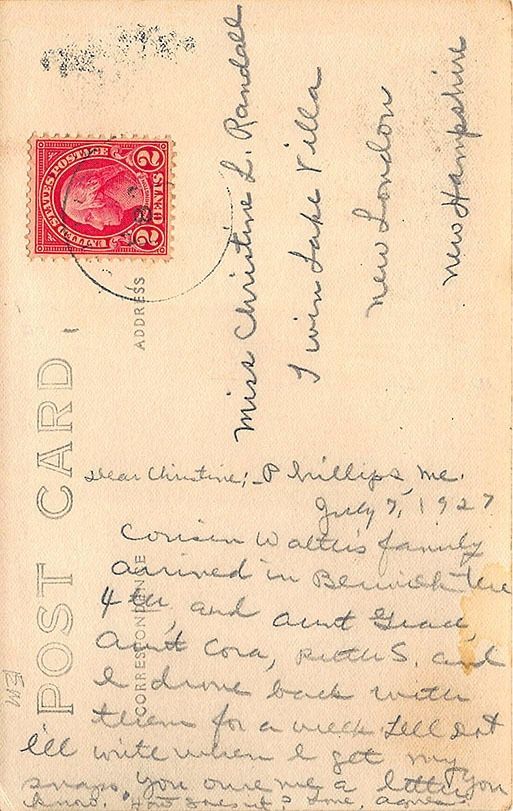 UNITED STATES POSTAGE
2 CENTS 2
POST CARD
ADDRESS
CORRESPONDENCE
Miss Christine L. Randall
Twin Lake Villa
New London
New Hampshire
Dear Christine; Phillips, Me.
July 7, 1927
Cousin Walter's family
arrived in Berwick the
4th, and Aunt Grace,
Aunt Cora, Ruth S. and
I drove back with
them for a week. Tell Dot
I'll write when I get my
snaps. You owe me a letter you
know. How goes it?
EM